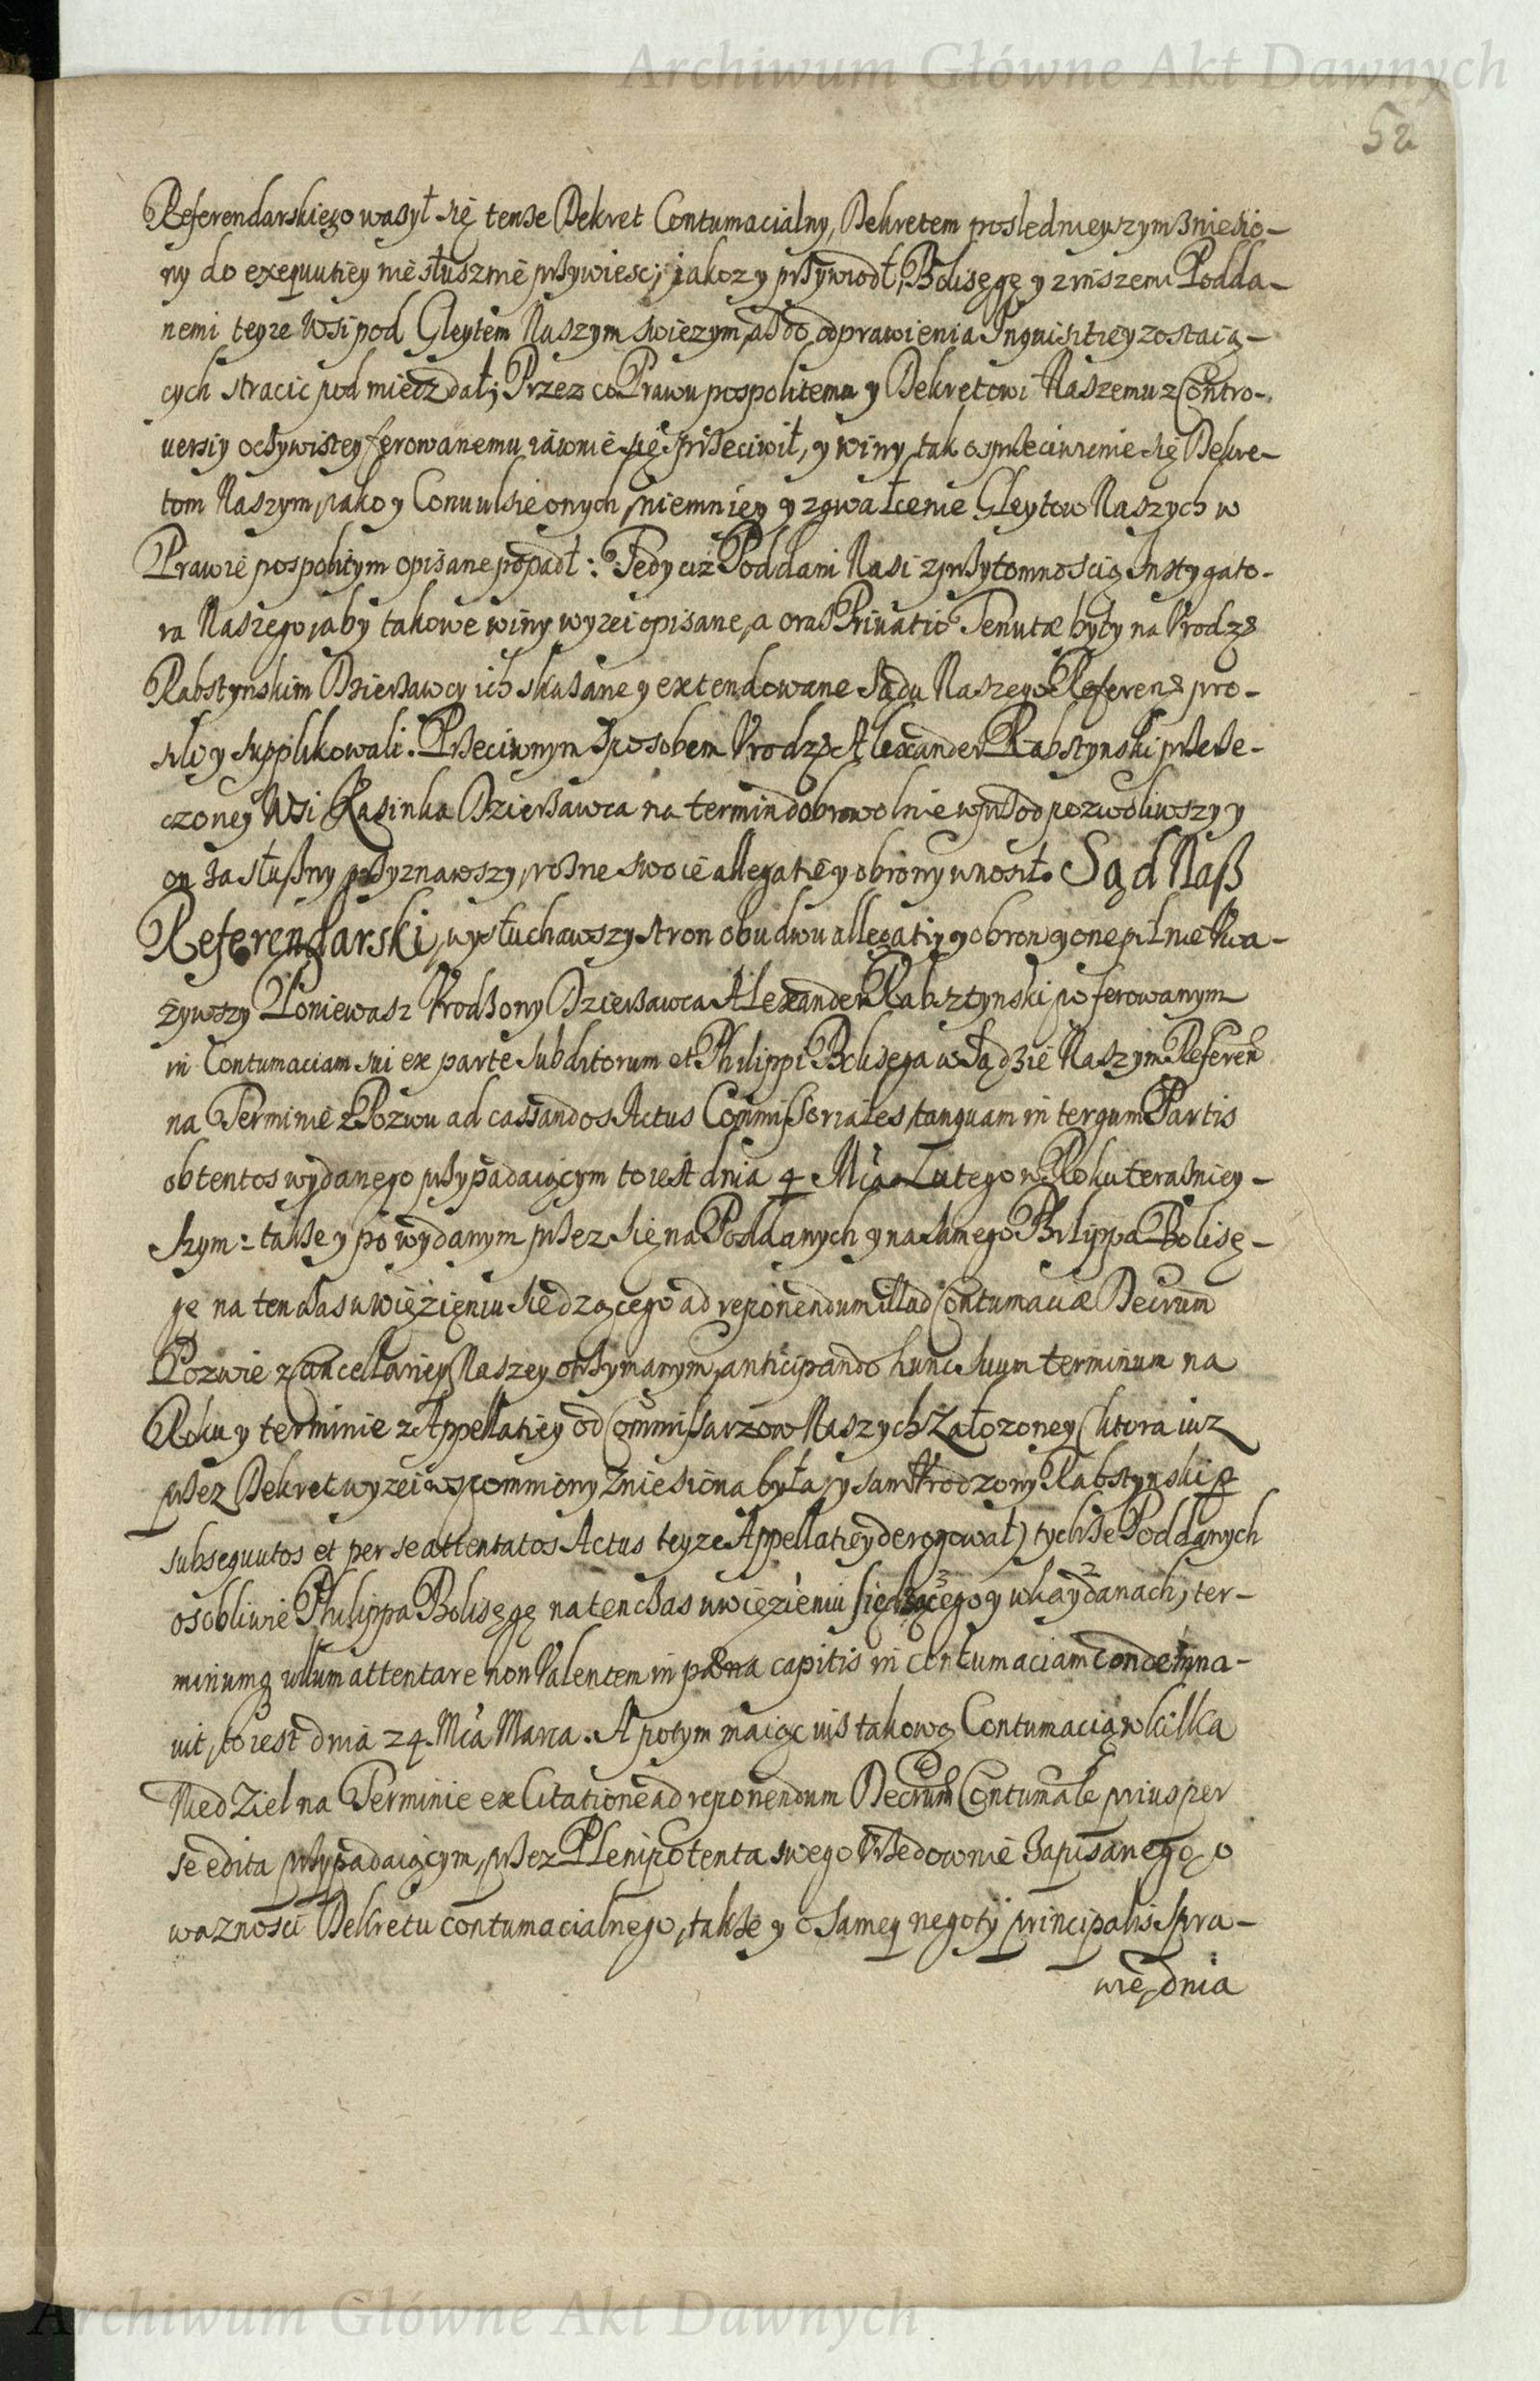 Archiwum Główne Akt Dawnych
52
Referendarskiego ważył się tenże Dekret Contumacialny, Dekretem poslednieyszym zniesio-
ny do exequutiey niesłusznie przywiesc; jakoz y przywiodł, Bolisęgę y z inszemi Podda-
nemi teyze Wsi pod Gleytem Naszym swiezym, aż do odprawienia Inquisitiey zostaią-
cych stracic pod miecz dał; Przez co Prawu pospolitemu y Dekretowi Naszemu z Contro-
uersiy oczywistey ferowanemu iawnie się przeciwił, y winy tak o sprzeciwienie się Dekre-
tom Naszym, jako y Conuulsie onych, niemniey y zgwałcenie Gleytow Naszych w
Prawie pospolitym opisane popadł: Tedy ciż Poddani Nasi z przytomnoscią Instygato-
ra Naszego, aby takowe winy wyzei opisane, a oraz Priuatio Tenutæ były na Vrodz
Rabstynskim Dzierzawcy ich skazane y extendowane Sądu Naszego Referen pro-
sili y supplikowali. Przeciwnym sposobem Vrodz Alexander Rabstynski przerze-
czoney Wsi Kasinka Dzierzawca na termin dobrowolnie wprzod pozwoliwszy y
on za słuszny przyznawszy, rożne swoie allegatie y obrony wnosił. Sąd Nasz
Referendarski, wysłuchawszy stron obudwu allegatiy y obron y one pilnie Vwa-
żywszy Poniewasz Vrodzony Dzierzawca Alexander Rabsztynski po ferowanym
in Contumaciam sui ex parte subditorum et Philippi Bolisega w Sądzie Naszym Referen
na Terminie z Pozwu ad cassandos Actus Commissoriales, tanquam in tergum Partis
obtentos wydanego przypadaiącym to iest dnia 4 Mca Lutego w Roku terazniey-
szym: takze y po wydanym przez się na Poddanych y na samego Philippa Bolisę-
gę na ten czas w więzieniu siedzącego ad reponendum illud Contumaciæ Decrum
Pozwie z Cancellariey Naszey otrzymanym, anticipando hunc suum terminum na
Roku y terminie z Appellatiey od Commissarzow Naszych Załozoney (ktora iuz
przez Dekret wyzei wspomniony zniesiona była, y sam Vrodzony Rabstynski p
subsequutos et per se attentatos Actus teyze Appellatiey derogował) tychze Poddanych
osobliwie Philippa Bolisęgę na ten czas w więzieniu siedzącego y w kaydanach, ter-
minumq ullum attentare non Valentem in pæna capitis in contumaciam condemna-
uit, to iest dnia 24 Mca Marca. A potym maiąc iuż takową Contumacią w kilka
Niedziel na Terminie ex Citatione ad reponendum Decrum Contumale prius per
se edita przypadaiącym, przez Plenipotenta swego Vrzedownie Zapisanego, o
waznosci Dekretu contumacialnego, takze y o samey negotij principalis spra-
wie, dnia
Archiwum Główne Akt Dawnych